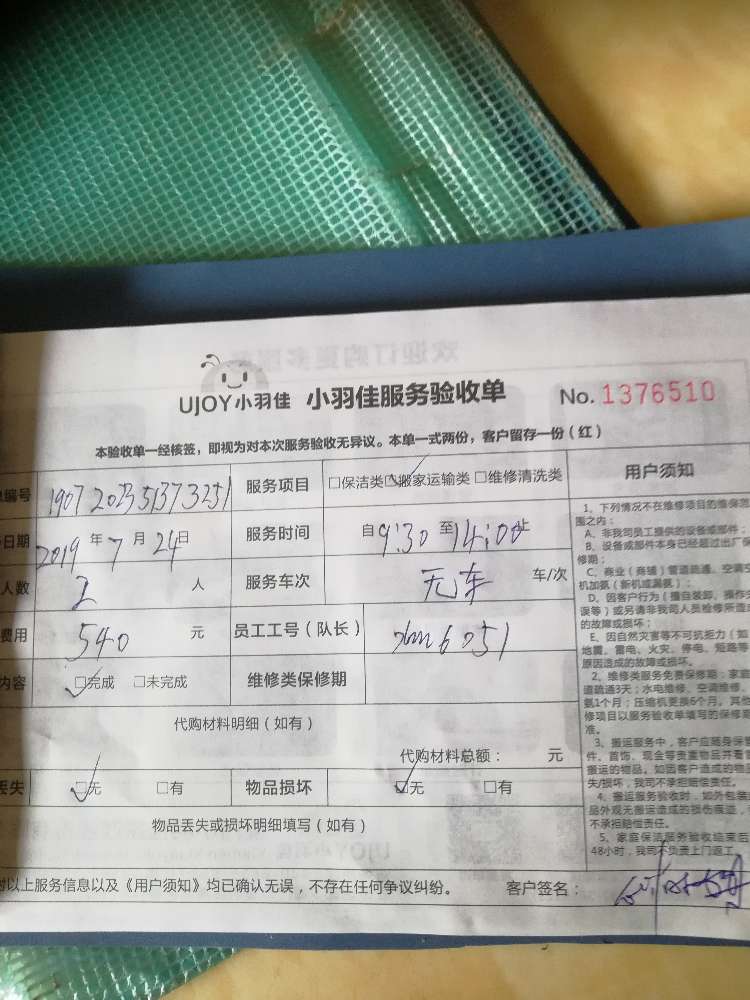 UJOY小羽佳 小羽佳服务验收单 No. 1376510
本验收单一经核签，即视为对本次服务验收无异议。本单一式两份，客户留存一份（红）
编号 1907202351373251 服务项目 □保洁类 ☑搬家运输类 □维修清洗类
日期 2019年7月24日 服务时间 自9:30至14:00止
人数 2 人 服务车次 无车 车/次
费用 540 元 员工工号（队长） 6051
内容 ☑完成 □未完成 维修类保修期
代购材料明细（如有）
代购材料总额： 元
丢失 ☑无 □有 物品损坏 ☑无 □有
物品丢失或损坏明细填写（如有）
对以上服务信息以及《用户须知》均已确认无误，不存在任何争议纠纷。 客户签名：
用户须知
1、下列情况不在维修项目的维保范
围之内：
A、非我司员工提供的设备或部件；
B、设备或部件本身已经超过出厂保
修期；
C、商业（商铺）管道疏通、空调空
机加氨（新机或漏氨）；
D、因客户行为（擅自装卸、操作失
误等）或另请非我司人员检修所造
的故障或损坏；
E、因自然灾害等不可抗拒力（如
地震、雷电、火灾、停电、短路等
原因造成的故障或损坏。
2、维修类服务免费保修期：家庭
道疏通3天；水电维修、空调维修、
氨1个月；压缩机更换6个月。其他
修项目以服务验收单填写的保修
准。
3、搬运服务中，客户应随身保管
件、首饰、现金等贵重物品并看管
搬运的物品，如因客户造成的物品
失/损坏，我司不承担赔偿责任。
4、搬运服务验收时，如外包装
品外观无搬运造成的损伤痕迹，
不承担赔偿责任。
5、家庭保洁服务验收结束后
48小时，我司不负责上门返工。